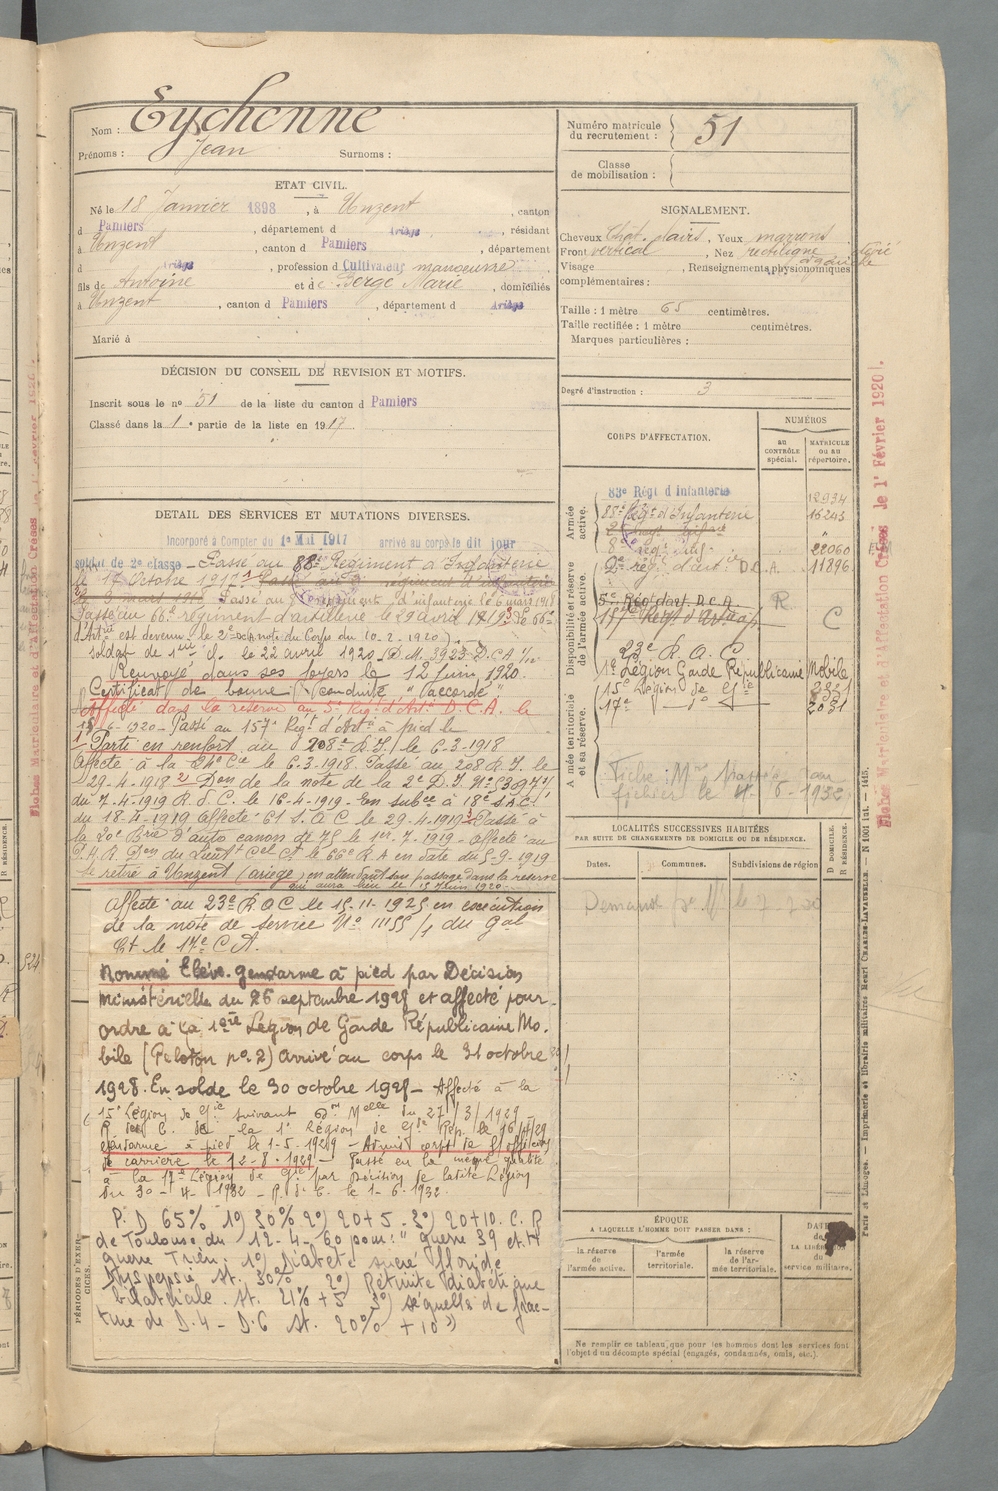 Nom : Eychenne
Prénoms : Jean Surnoms :
ETAT CIVIL.
Né le 18 Janvier 1898, à Unzent, canton
d Pamiers, département d Ariège, résidant
à Unzent, canton d Pamiers, département
d Ariège, profession d Cultivateur manoeuvre
fils de Antoine et de Berge Marie, domiciliés
à Unzent, canton d Pamiers, département d Ariège
Marié à
DÉCISION DU CONSEIL DE REVISION ET MOTIFS.
Inscrit sous le no 51 de la liste du canton d Pamiers
Classé dans la 1e partie de la liste en 1917
DETAIL DES SERVICES ET MUTATIONS DIVERSES.
Incorporé à Compter du 1er Mai 1917 arrivé au corps le dit jour
soldat de 2e classe - Passé au 88e Régiment d'Infanterie
le 17 Octobre 1917. Passé au régiment d'infanterie
3 mars 1918 Passé au régiment d'infanterie le 6 mars 1918
Passé au 66e régiment d'artillerie le 29 avril 1919 Le 66e
d'Artie est devenu le 2e note du Corps du 10-2-1920
soldat de 1ère cl. le 22 avril 1920 (D.M. 3923 D.C.A.
Renvoyé dans ses foyers le 12 Juin 1920.
Certificat de bonne conduite "accordé"
Affecté dans la réserve au 5e Régt d'Artie D.C.A. le
15-6-1920 - Passé au 157e Régt d'Artie à pied le
1) Parti en renfort au 208e R.I. le 6-3-1918
affecté à la Cie le 6-3-1918. Passé au 208 R.I. le
29-4-1918 2) Don de la note de la 2e D.I. No 5309
du 7-4-1919 R.D.C. le 16-4-1919 - En subce à 18e S.A.C.
du 18-4-1919 affecté C1 S.O.C. le 29-4-1919 3) Passé à
la 20e Brie d'auto canon de 75 le 1er-7-1919 - affecté au
P.H.R. Don du Lieut Cel Ct le 66e R A en date du 5-9-1919
Se retire à Unzent (ariège) en attendant son passage dans la réserve
qui aura lieu le 15 Juin 1920
Affecté au 23e R.O.C le 15-11-1925 en exécution
de la note de service No 11155/1 du Gal
Ct le 17e C A.
Nommé Elève-gendarme à pied par Décision
ministérielle du 26 septembre 1928 et affecté pour
ordre à la 1ère Légion de Garde Républicaine Mo-
bile (Peloton no 2) Arrivé au corps le 31 octobre
1928. En solde le 30 octobre 1928 - Affecté à la
15e Légion de Gie suivant Don Melle du 27/3/1929
R. de C. de la 1e Légion de Gde Rép. le 16/4/29
gendarme à pied le 1-5-1929 - Admis corps de S/officiers
de carrière le 12-8-1929 - Passé en la même qualité
à la 17e Légion de Gie par Décision de ladite Légion
du 30-4-1932 - R. de C. le 1-6-1932.
P.D. 65% 1o) 30% 2o) 20+5 - 3o) 20+10. C. R
de Toulouse du 12-4-60 pour: "guerre 39 et H
guerre Trien: 1o) Diabète sucré floride
dyspepsie st. 30% 2o) Rétinite diabétique
bilatérale. st. 21% + 5 3o) séquelles de frac-
ture de D.4 - D.6 st. 20% + 10 »)
PÉRIODES D'EXERCICES.
Numéro matricule du recrutement : 51
Classe de mobilisation :
SIGNALEMENT.
Cheveux Chat. clairs, Yeux marrons
Front vertical, Nez rectiligne
Visage, Renseignements physionomiques
complémentaires :
Taille : 1 mètre 65 centimètres.
Taille rectifiée : 1 mètre centimètres.
Marques particulières :
Degré d'instruction : 3
CORPS D'AFFECTATION.
NUMÉROS
AU CONTRÔLE spécial.
MATRICULE ou au répertoire.
Armée active.
83e Régt d'Infanterie 12934
88e Régt d'Infanterie 16243
8e rég. inf. 22060
2e rég. d'artie D.C.A. 11896
Disponibilité et réserve de l'armée active.
5e Régt d'art D.C.A R
157e Régt d'Art à p. C
23e R.O.C.
1e Légion Garde Républicaine Mobile
15e Légion de Gie 2321
17e 2031
Armée territoriale et sa réserve.
Fiche Mle passée au
fichier le 4-6-1932
LOCALITÉS SUCCESSIVES HABITÉES
PAR SUITE DE CHANGEMENTS DE DOMICILE OU DE RÉSIDENCE.
Dates. Communes. Subdivisions de région
D DOMICILE.
R RÉSIDENCE.
ÉPOQUE
A LAQUELLE L'HOMME DOIT PASSER DANS :
la réserve de l'armée active.
l'armée territoriale.
la réserve de l'armée territoriale.
DATE DE LA LIBÉRATION du service militaire.
Ne remplir ce tableau que pour les hommes dont les services font
l'objet d'un décompte spécial (engagés, condamnés, omis, etc.).
Fiches Matriculaire et d'Affectation Créées le 1er Février 1920.
Paris et Limoges. — Imprimerie et librairie militaires Henri CHARLES-LAVAUZELLE.